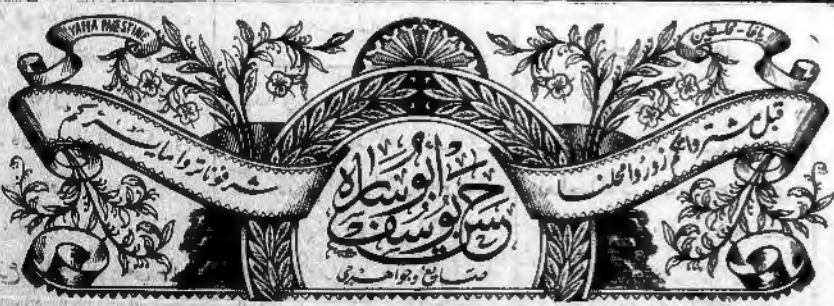 YAFFA PALESTINE
يافا - فلسطين
قبل مشتراكم زوروا محلنا
شرفونا تروا ما يسركم
حسن يوسف أبو ساره
صايغ وجواهرجي